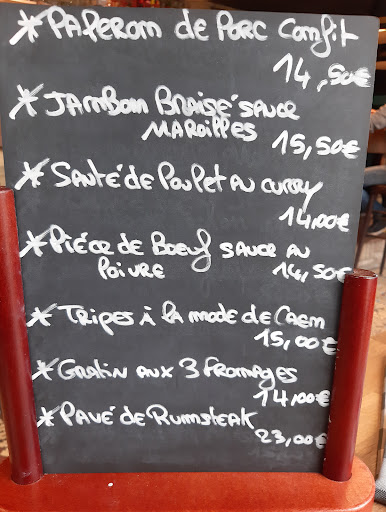 * Paperom de Porc Confit
14,50€
* Jambom Braisé sauce
Maroilles 15,50€
* Sauté de Poulet au curry
14,00€
* Pièce de Boeuf sauce au
Poivre 14,50€
* Tripes à la mode de Caem
15,00€
* Gratin aux 3 fromages
14,00€
* Pavé de Rumsteak
23,00€